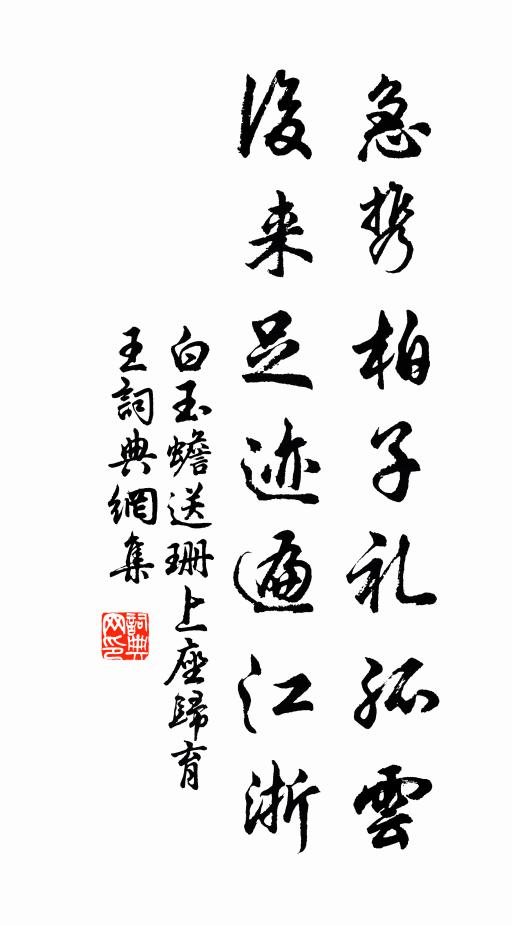 急携柏子礼孤雲
後来足迹遍江浙
白玉蟾送珊上座歸育
王詞典網集
詞典
网印